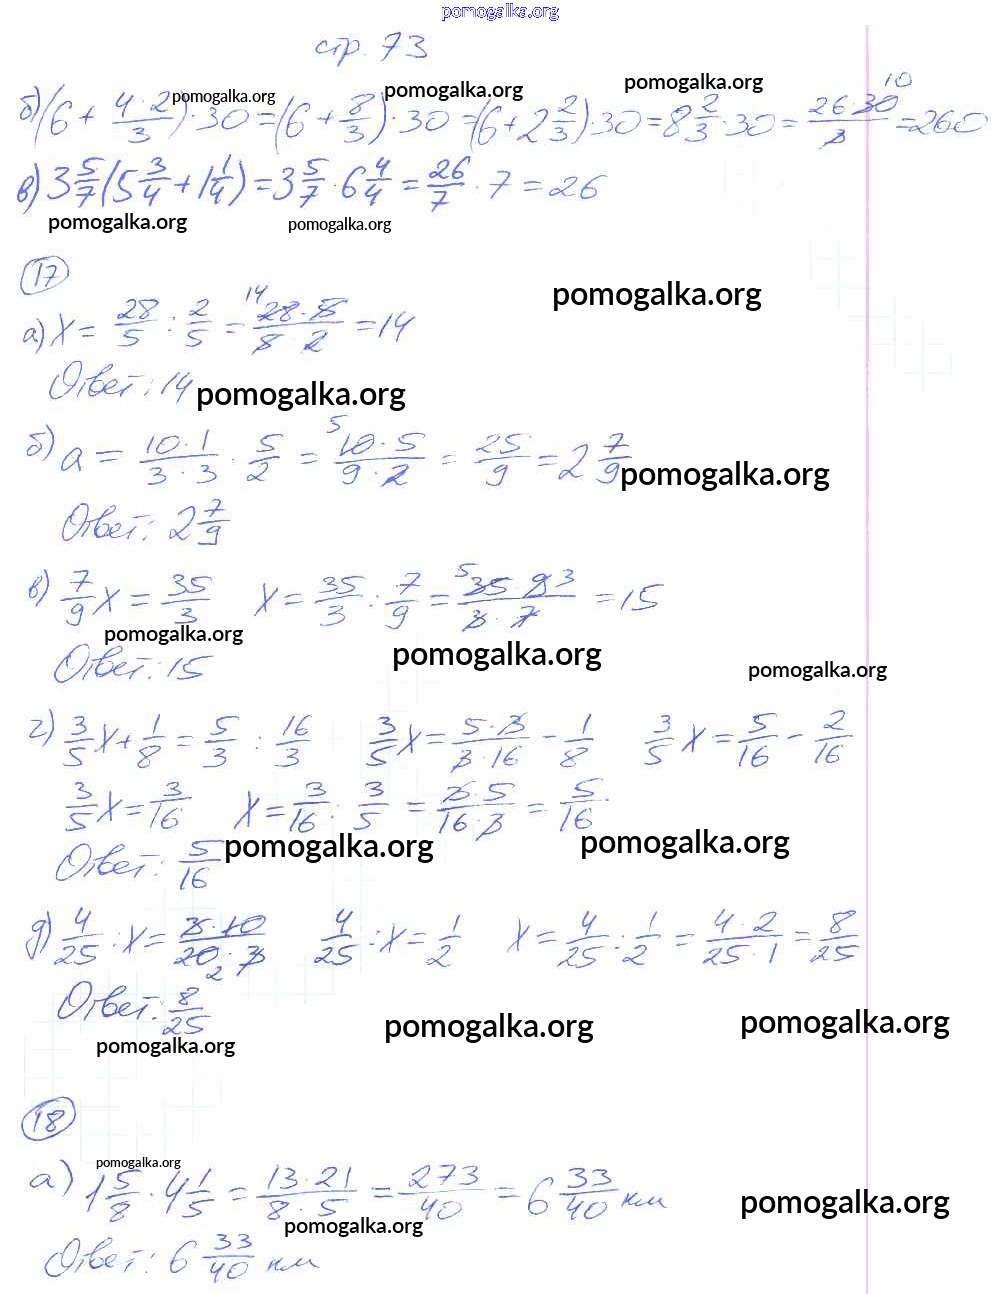 pomogalka.org
стр. 73
б) (6 + 4·2/3)·30 = (6 + 8/3)·30 = (6 + 2 2/3)·30 = 8 2/3·30 = 26·30 10/3 = 260
pomogalka.org pomogalka.org pomogalka.org
в) 3 5/7 (5 3/4 + 1 1/4) = 3 5/7 · 6 4/4 = 26/7 · 7 = 26
pomogalka.org pomogalka.org
17
pomogalka.org
а) x = 28/5 : 2/5 = 14 28·5/5·2 = 14
Ответ: 14 pomogalka.org
б) a = 10·1/3·3 · 5/2 = 5 10·5/9·2 = 25/9 = 2 7/9
pomogalka.org
Ответ: 2 7/9
в) 7/9 x = 35/3 x = 35/3 : 7/9 = 5 35·9 3/3·7 = 15
pomogalka.org pomogalka.org
Ответ: 15 pomogalka.org
г) 3/5 x + 1/8 = 5/3 : 16/3 3/5 x = 5·3/3·16 - 1/8 3/5 x = 5/16 - 2/16
3/5 x = 3/16 x = 3/16 : 3/5 = 3·5/16·3 = 5/16
pomogalka.org pomogalka.org
Ответ: 5/16
д) 4/25 : x = 3·10/20 2·3 4/25 : x = 1/2 x = 4/25 : 1/2 = 4·2/25·1 = 8/25
Ответ: 8/25
pomogalka.org pomogalka.org pomogalka.org
18
pomogalka.org
а) 1 5/8 · 4 1/5 = 13·21/8·5 = 273/40 = 6 33/40 км
pomogalka.org pomogalka.org
Ответ: 6 33/40 км